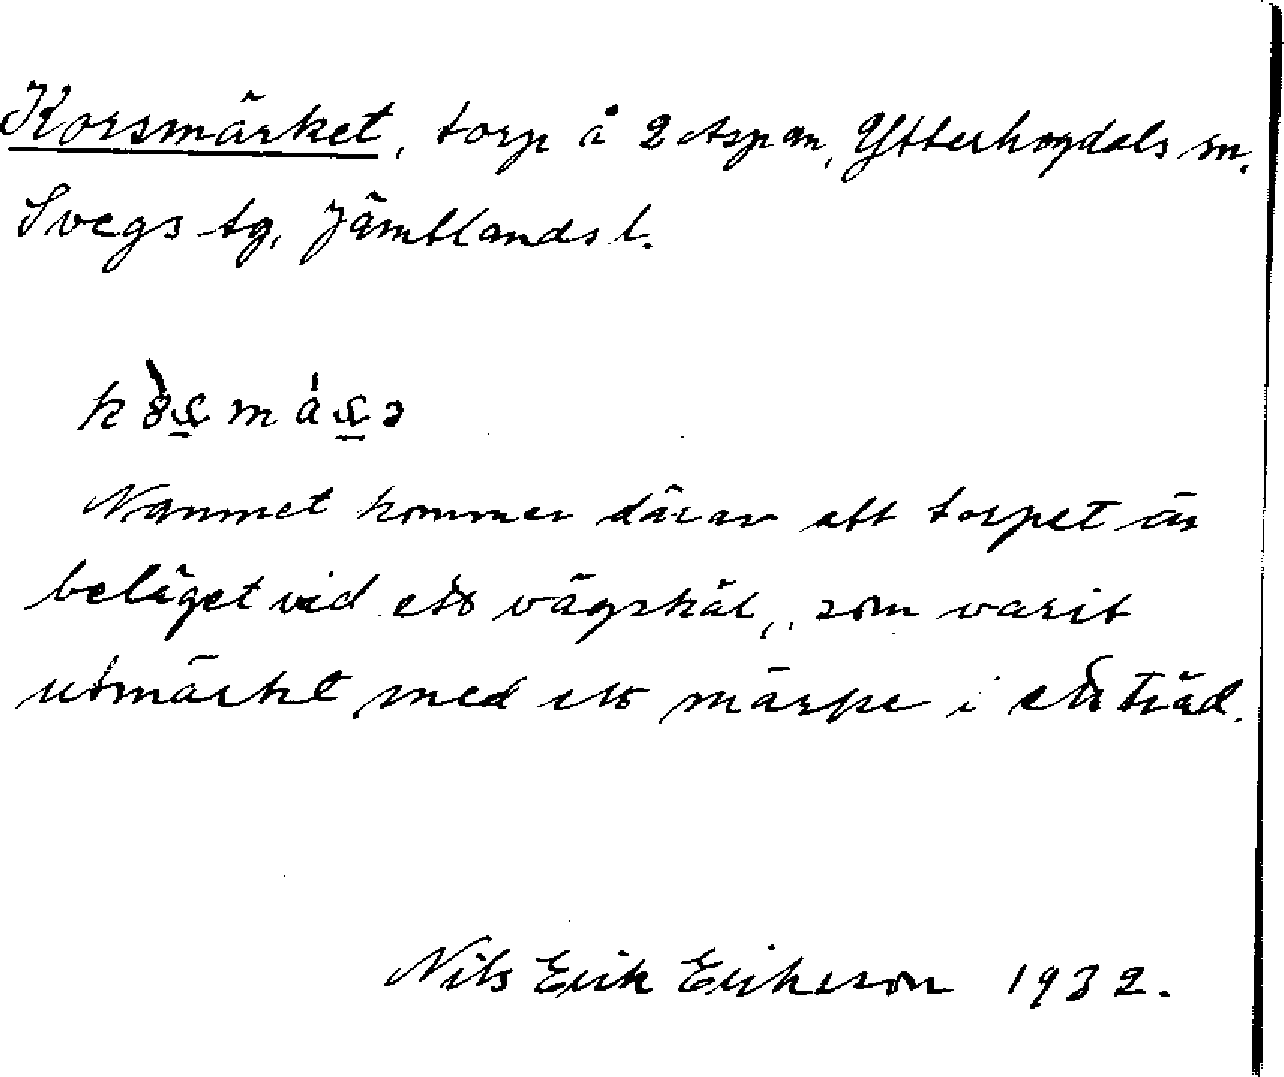 Korsmärket, torp å 2 Aspan, Ytterhogdals sn.
Svegs tg, Jämtlands l.
Namnet kommer därav att torpet är
beläget vid ett vägskäl, som varit
utmärkt med ett märke i ett träd.
Nils Erik Erikson 1932.